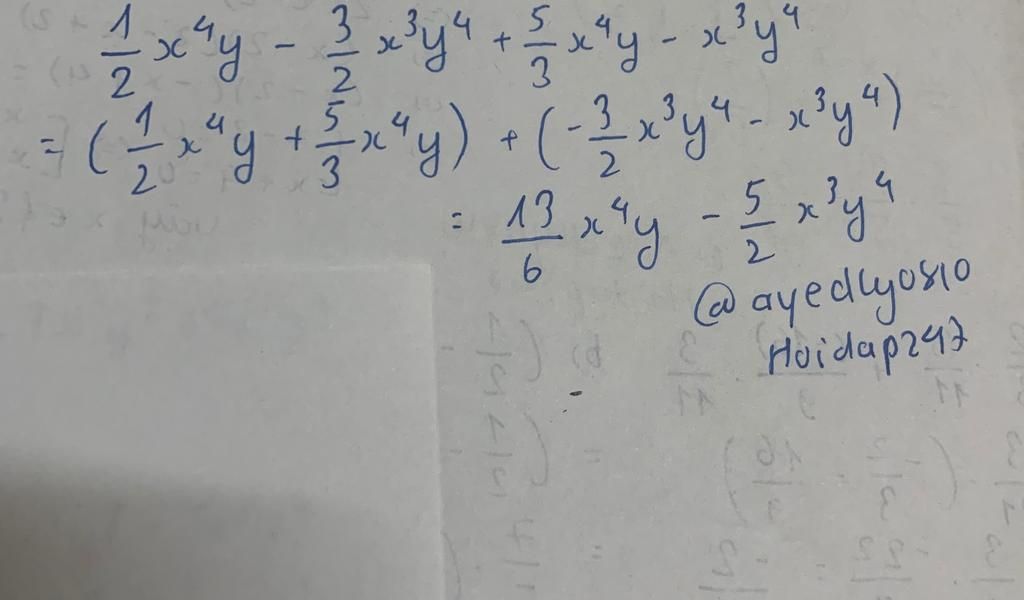 1/2 x⁴y - 3/2 x³y⁴ + 5/3 x⁴y - x³y⁴
= (1/2 x⁴y + 5/3 x⁴y) + (-3/2 x³y⁴ - x³y⁴)
= 13/6 x⁴y - 5/2 x³y⁴
@ayedly0810
Hoidap247